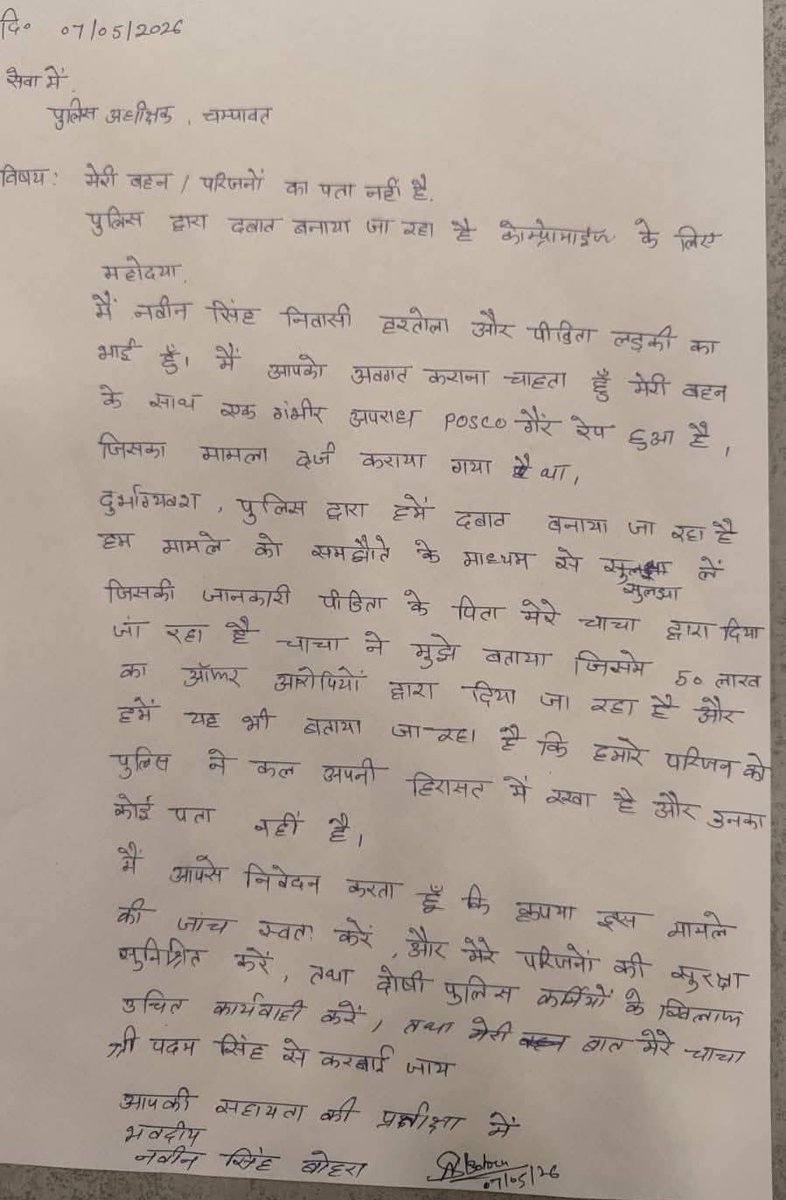 दि० 07/05/2026
सेवा में,
पुलिस अधीक्षक, चम्पावत
विषय: मेरी बहन / परिजनों का पता नहीं है.
पुलिस द्वारा दबाव बनाया जा रहा है कोम्प्रोमाइज के लिए
महोदया,
मैं नवीन सिंह निवासी हरतोला और पीडिता लड़की का
भाई हूँ। मैं आपको अवगत कराना चाहता हूँ मेरी बहन
के साथ एक गंभीर अपराध POSCO गैंग रेप हुआ है,
जिसका मामला दर्ज कराया गया है था,
दुर्भाग्यवश, पुलिस द्वारा हमें दबाव बनाया जा रहा है
हम मामले को समझौते के माध्यम से सुलझा लें
सुलझा
जिसकी जानकारी पीडिता के पिता मेरे चाचा द्वारा दिया
जा रहा है चाचा ने मुझे बताया जिसमे 50 लाख
का ऑफर आरोपियों द्वारा दिया जा रहा है और
हमें यह भी बताया जा रहा है कि हमारे परिजन को
पुलिस ने कल अपनी हिरासत में रखा है और उनका
कोई पता नहीं है।
मैं आपसे निवेदन करता हूँ कि कृपया इस मामले
की जांच स्वतः करें, और मेरे परिजनों की सुरक्षा
सुनिश्चित करें, तथा दोषी पुलिस कर्मियों के खिलाफ
उचित कार्यवाही करें, तथा मेरी बात मेरे चाचा
श्री पदम सिंह से करवाई जाय
आपकी सहायता की प्रतीक्षा में
भवदीय
नवीन सिंह बोहरा
07/05/26